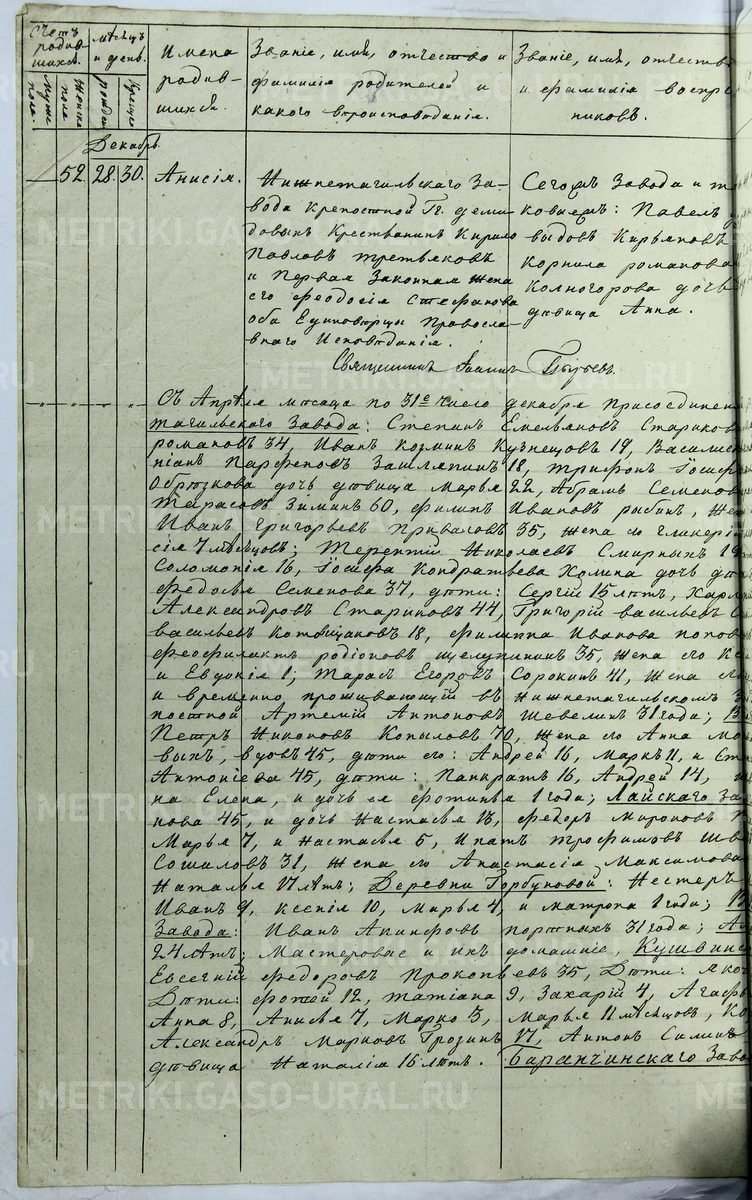 Счетъ родившихся.
Мужеска пола.
Женска пола.
Мѣсяцъ и день.
рожден
крещен
Имена родившихся.
Званіе, имя, отчество и фамилія родителей и какого вѣроисповѣданія.
Званіе, имя, отчество и фамилія воспре никовъ.
Декабрь
52. 28. 30. Анисія.
Нижнетагильскаго За-
вода крепостной Гг. Деми
довыхъ Крестьянинъ Кирило
Павловъ Третьяковъ
и Первая Законная жена
его Феодосія Стефанова
оба Единоверцы Правосла-
внаго Исповѣданія.
Сегожъ Завода и т
ковыежъ: Павелъ
выдовъ Кирьяновъ
Корнила Романова
Колногорова дочь
дѣвица Анна.
Священникъ Іоаннъ Пырьевъ.
Съ Апрѣля мѣсяца по 31е число декабря присоединен
тагильскаго Завода: Степанъ Емельяновъ Стариков
романовъ 34, Иванъ Козминъ Кузнецовъ 19, Василис
Парфеновъ Зашляпинъ 18, Трифонъ Іосиф
Обрюзкова дочь дѣвица Марья 22, Абрамъ Семенов
Тарасовъ Зиминъ 60, Филипъ Ивановъ рыбинъ, же
Иванъ Григорьевъ Приваловъ 35, жена его Гликері
сія 7 мѣсяцовъ; Терентій Николаевъ Смирныхъ 19
Соломонія 16, Іосифа Кондратьева Холина дочь дѣв
Федосья Семенова 37, дѣти: Сергій 15 лѣтъ, Харл
Александровъ Стариковъ 44, Григорій васильевъ С
васильевъ 18, Филиппа Иванова попов
Феофилактъ родіоновъ щелупининъ 35, жена его Кс
и Евдокія 1; Тарасъ Егоровъ Сорокинъ 41, жена
и временно проживающій въ Нижнетагильскомъ З
постной Артемій Антоновъ Шевелинъ 31 года;
Петръ Никоновъ Копыловъ 70, жена его Анна Мо
выхъ, вдовъ 45, дѣти его: Андрей 16, Маркъ 11, и Ст
Антоніева 45, дѣти: Панкратъ 16, Андрей 14,
на Елена, и дочь ея Фотинья 1 года; Лайскаго За
нова 45, и дочь Настасья 13, Федоръ Мироновъ
Марья 7, и Настасья 5, Ипатъ Трофимовъ Шв
Сошиловъ 31, жена его Анастасія Максимова
Наталья 17 лѣтъ; Деревни Горбуновой: Нестеръ
Иванъ 9, Ксенія 10, Марья 4, и Матрона 1 года;
Завода: Иванъ Акинфовъ портныхъ 31 года;
24 лѣтъ; Мастеровые и ихъ домашніе, Кушвинс
Евсегній Федоровъ Прокопьевъ 35, Дѣти: Яков
Дѣти: Фотей 12, Татіана 9, Захарій 4, Агаф
Анна 8, Анисья 7, Марко 3, Марья 11 мѣсяцовъ,
Александръ Марковъ Грозинъ 17, Антонъ Силинъ
дѣвица Наталія 16 лѣтъ. Баранчинскаго Заво
METRIKI.GASO-URAL.RU